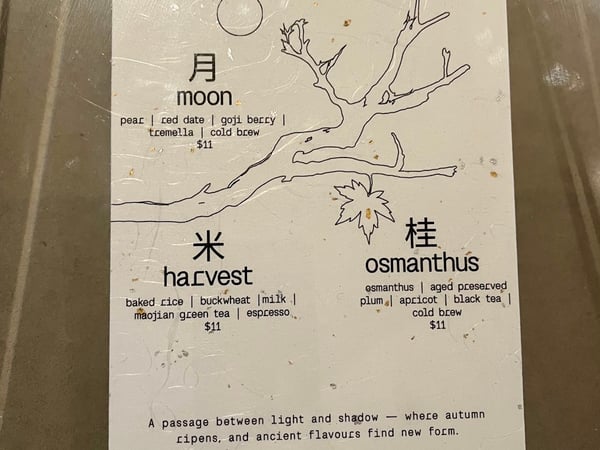 月
moon
pear | red date | goji berry |
tremella | cold brew
$11
米
harvest
baked rice | buckwheat | milk |
maojian green tea | espresso
$11
桂
osmanthus
osmanthus | aged preserved
plum | apricot | black tea |
cold brew
$11
A passage between light and shadow — where autumn
ripens, and ancient flavours find new form.